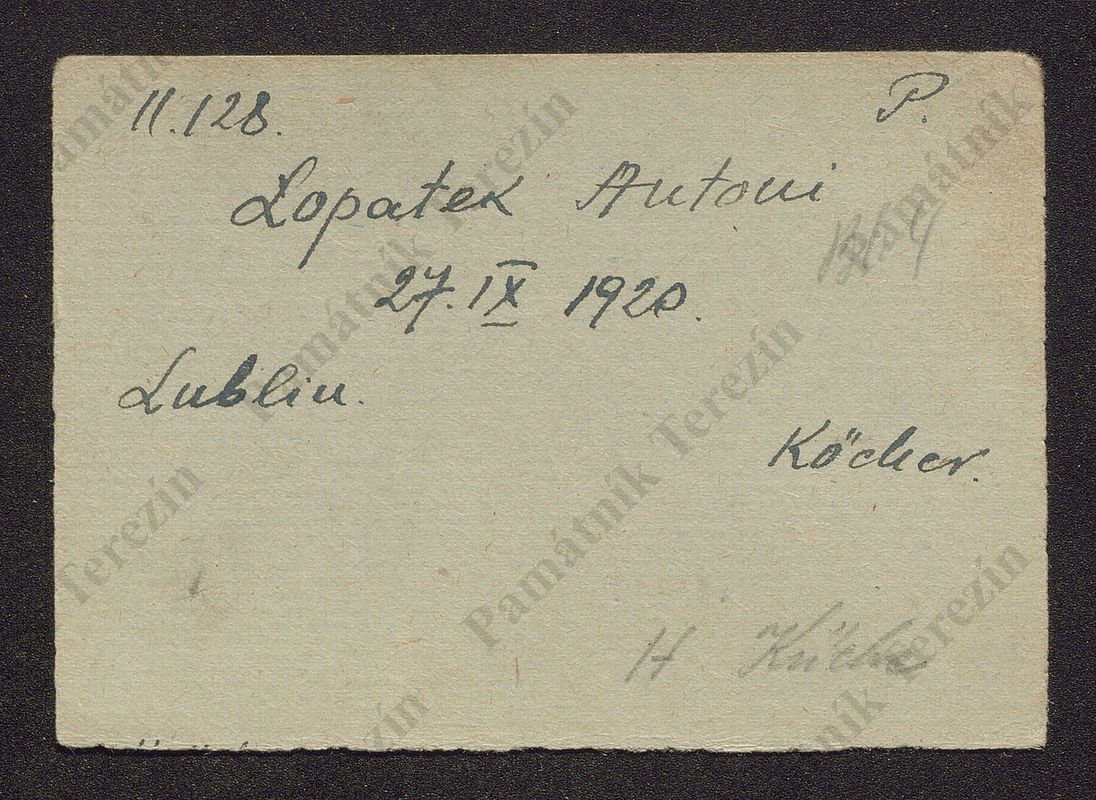 11.128. P.
Lopatek Antoni
27. IX 1920.
Lublin.
Köcher.
H
Památník Terezín